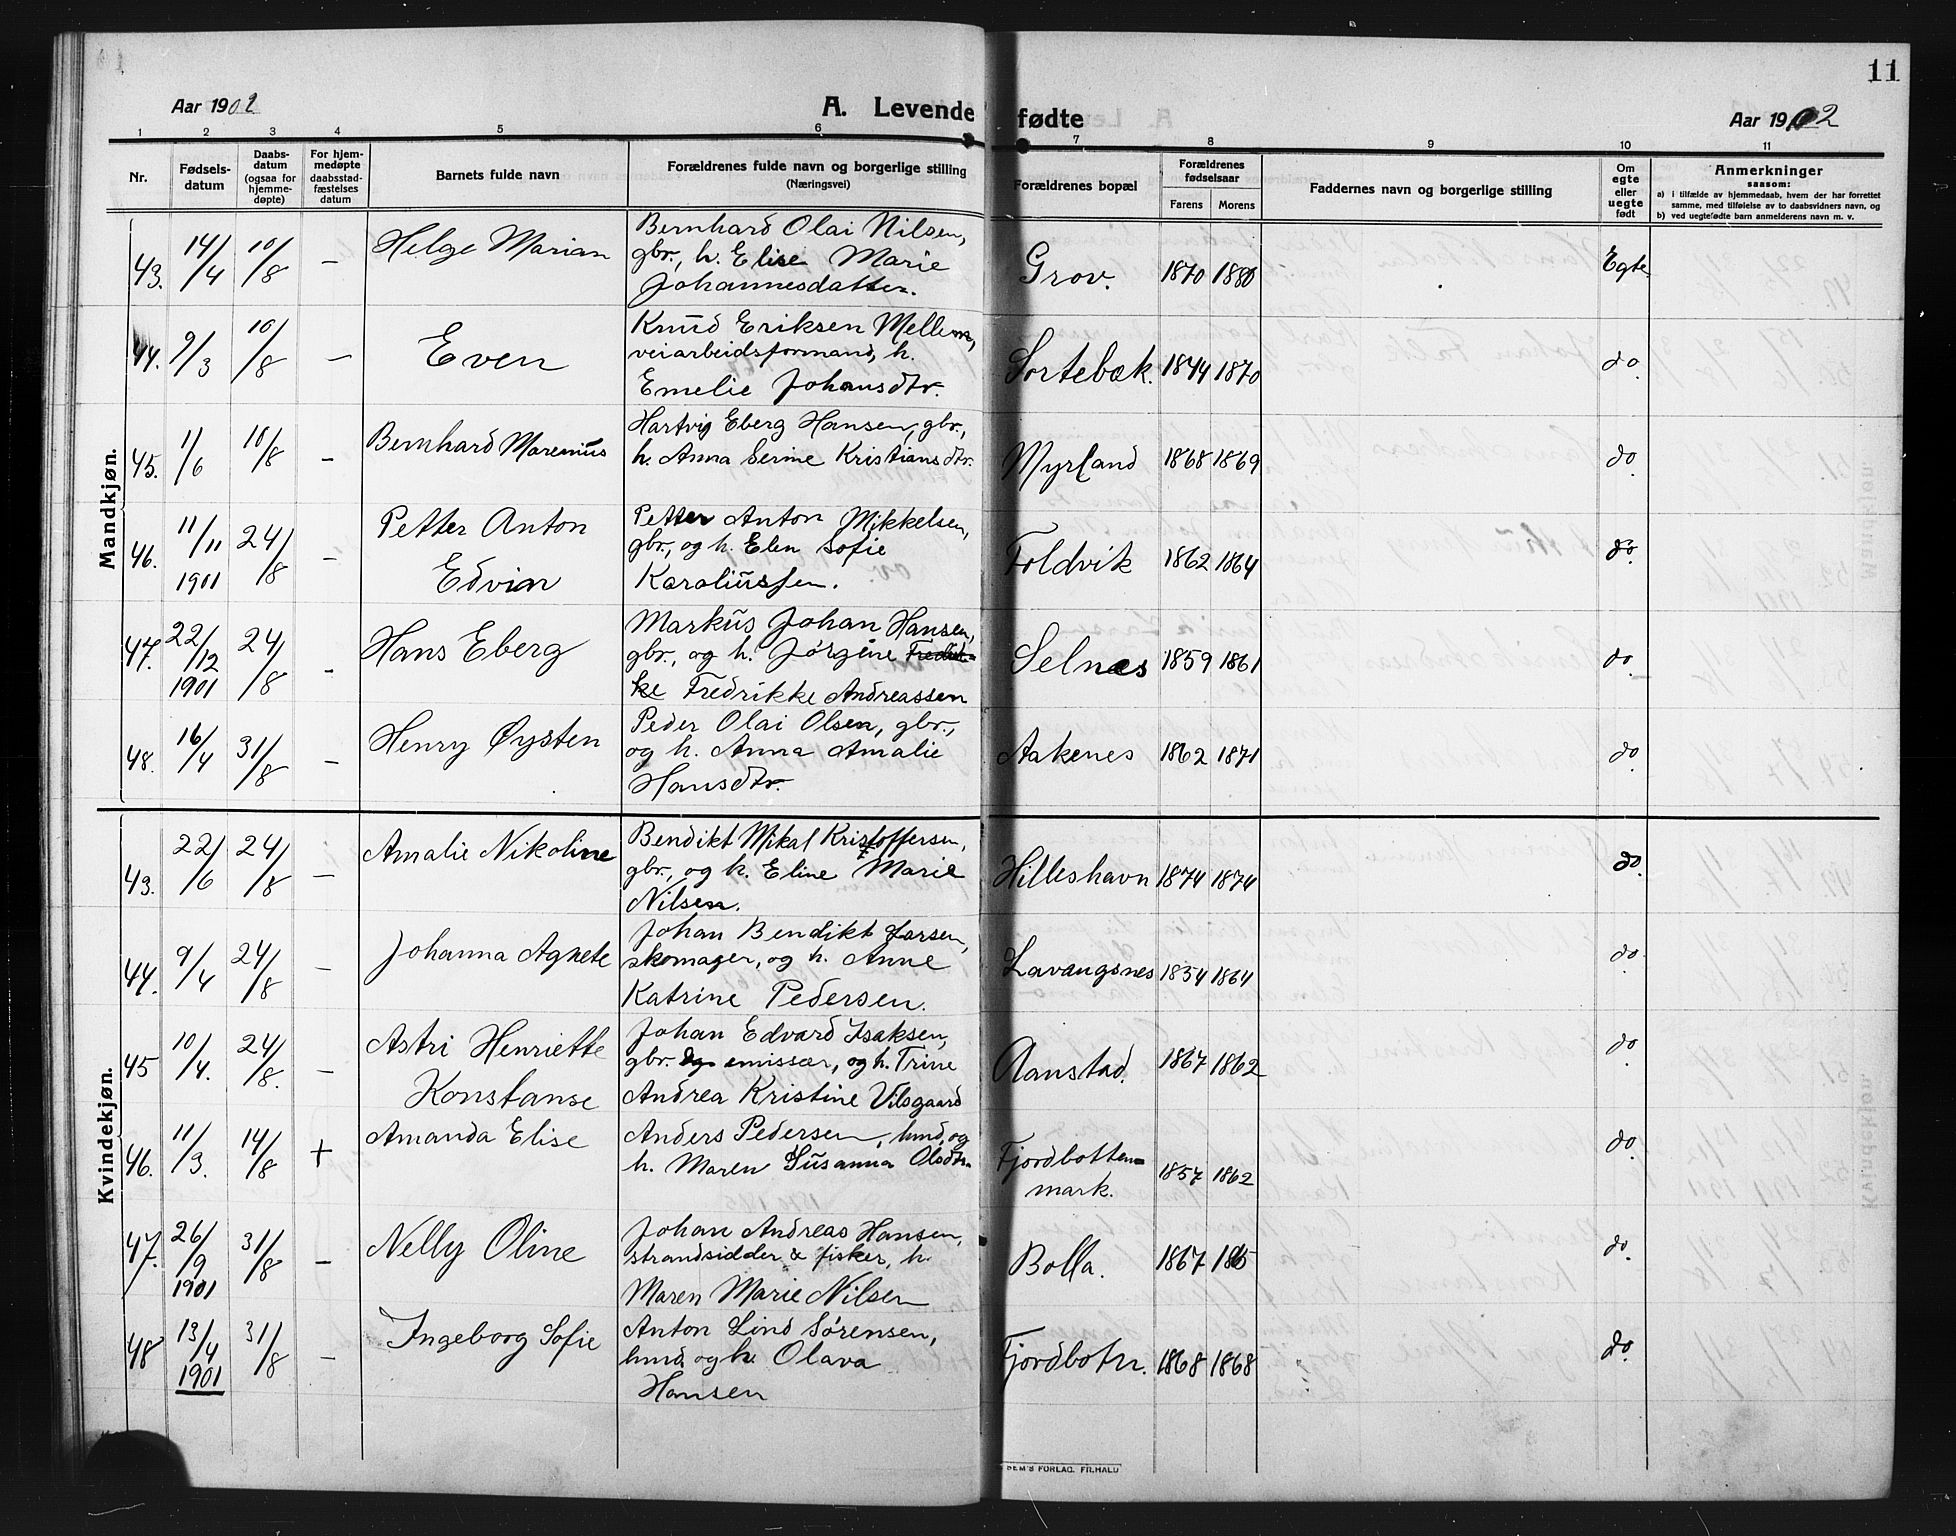 11
Aar 1902
A. Levende fødte
Aar 1902
1 2 3 4 5 6 7 8 9 10 11
Nr.
Fødsels-
datum
Daabs-
datum
(ogsaa for
hjemme-
døpte)
For hjem-
medøpte
daabsstad-
fæstelses
datum
Barnets fulde navn
Forældrenes fulde navn og borgerlige stilling
(Næringsvei)
Forældrenes bopæl
Forældrenes
fødselsaar
Farens Morens
Faddernes navn og borgerlige stilling
Om
egte
eller
uegte
født
Anmerkninger
saasom:
a) i tilfælde av hjemmedaab, hvem der har forrettet
samme, med tilføielse av to daabsvidners navn, og
b) ved uegtefødte barn anmelderens navn m. v.
Mandkjøn.
43. 14/4 10/8 – Helge Marian
Bernhard Olai Nilsen,
gbr., h. Elise Marie
Johannesdatter.
Grov. 1870 1880 Egte
44. 9/3 10/8 – Even
Knud Eriksen Mellem,
veiarbeidsformand, h.
Emelie Johansdtr.
Sortebæk. 1844 1870 do.
45. 1/6 10/8 – Bernhard Marenius
Hartvig Eberg Hansen, gbr.,
h. Anna Serine Kristiansdtr.
Myrland 1868 1869 do.
46. 11/11 1901 24/8 – Petter Anton
Edvin
Petter Anton Mikkelsen,
gbr., og h. Elen Sofie
Karoliussen.
Foldvik 1862 1864 do.
47. 22/12 1901 24/8 – Hans Eberg
Markus Johan Hansen,
gbr., og h. Jørgine
ke Fredrikke Andreassen
Selnæs 1859 1861 do
48. 16/4 31/8 – Henry Øysten
Peder Olai Olsen, gbr.,
og h. Anna Amalie
Hansdtr.
Aakenes 1862 1871 do
Kvindekjøn.
43. 22/6 24/8 – Amalie Nikoline
Bendikt Mikal Kristoffersen,
gbr., og h. Eline Marie
Nilsen.
Hilleshavn 1874 1874 do.
44. 9/4 24/8 – Johanna Agnete
Johan Bendikt Larsen,
skomager, og h. Anne
Katrine Pedersen.
Lavangsnes 1854 1864 do.
45 10/4. 24/8. – Astri Henriette
Konstanse
Johan Edvard Isaksen,
gbr. og emissær, og h. Trine
Andrea Kristine Vilsgaard
Aanstad. 1867 1862 do
46. 11/3. 14/8 + Amanda Elise
Anders Pedersen, hmd. og
h. Maren Susanna Olsdtr.
Fjordbotten=
mark. 1857 1862 do.
47. 26/9 1901 31/8 – Nelly Oline
Johan Andreas Hansen,
strandsidder & fisker, h.
Maren Marie Nilsen
Bolla. 1867 1865 do.
48 13/4 1901 31/8 – Ingeborg Sofie
Anton Lind Sørensen,
hmd. og h. Olava
Hansen
Fjordbotn. 1868 1868 do.
FORLAG. FR.HALD